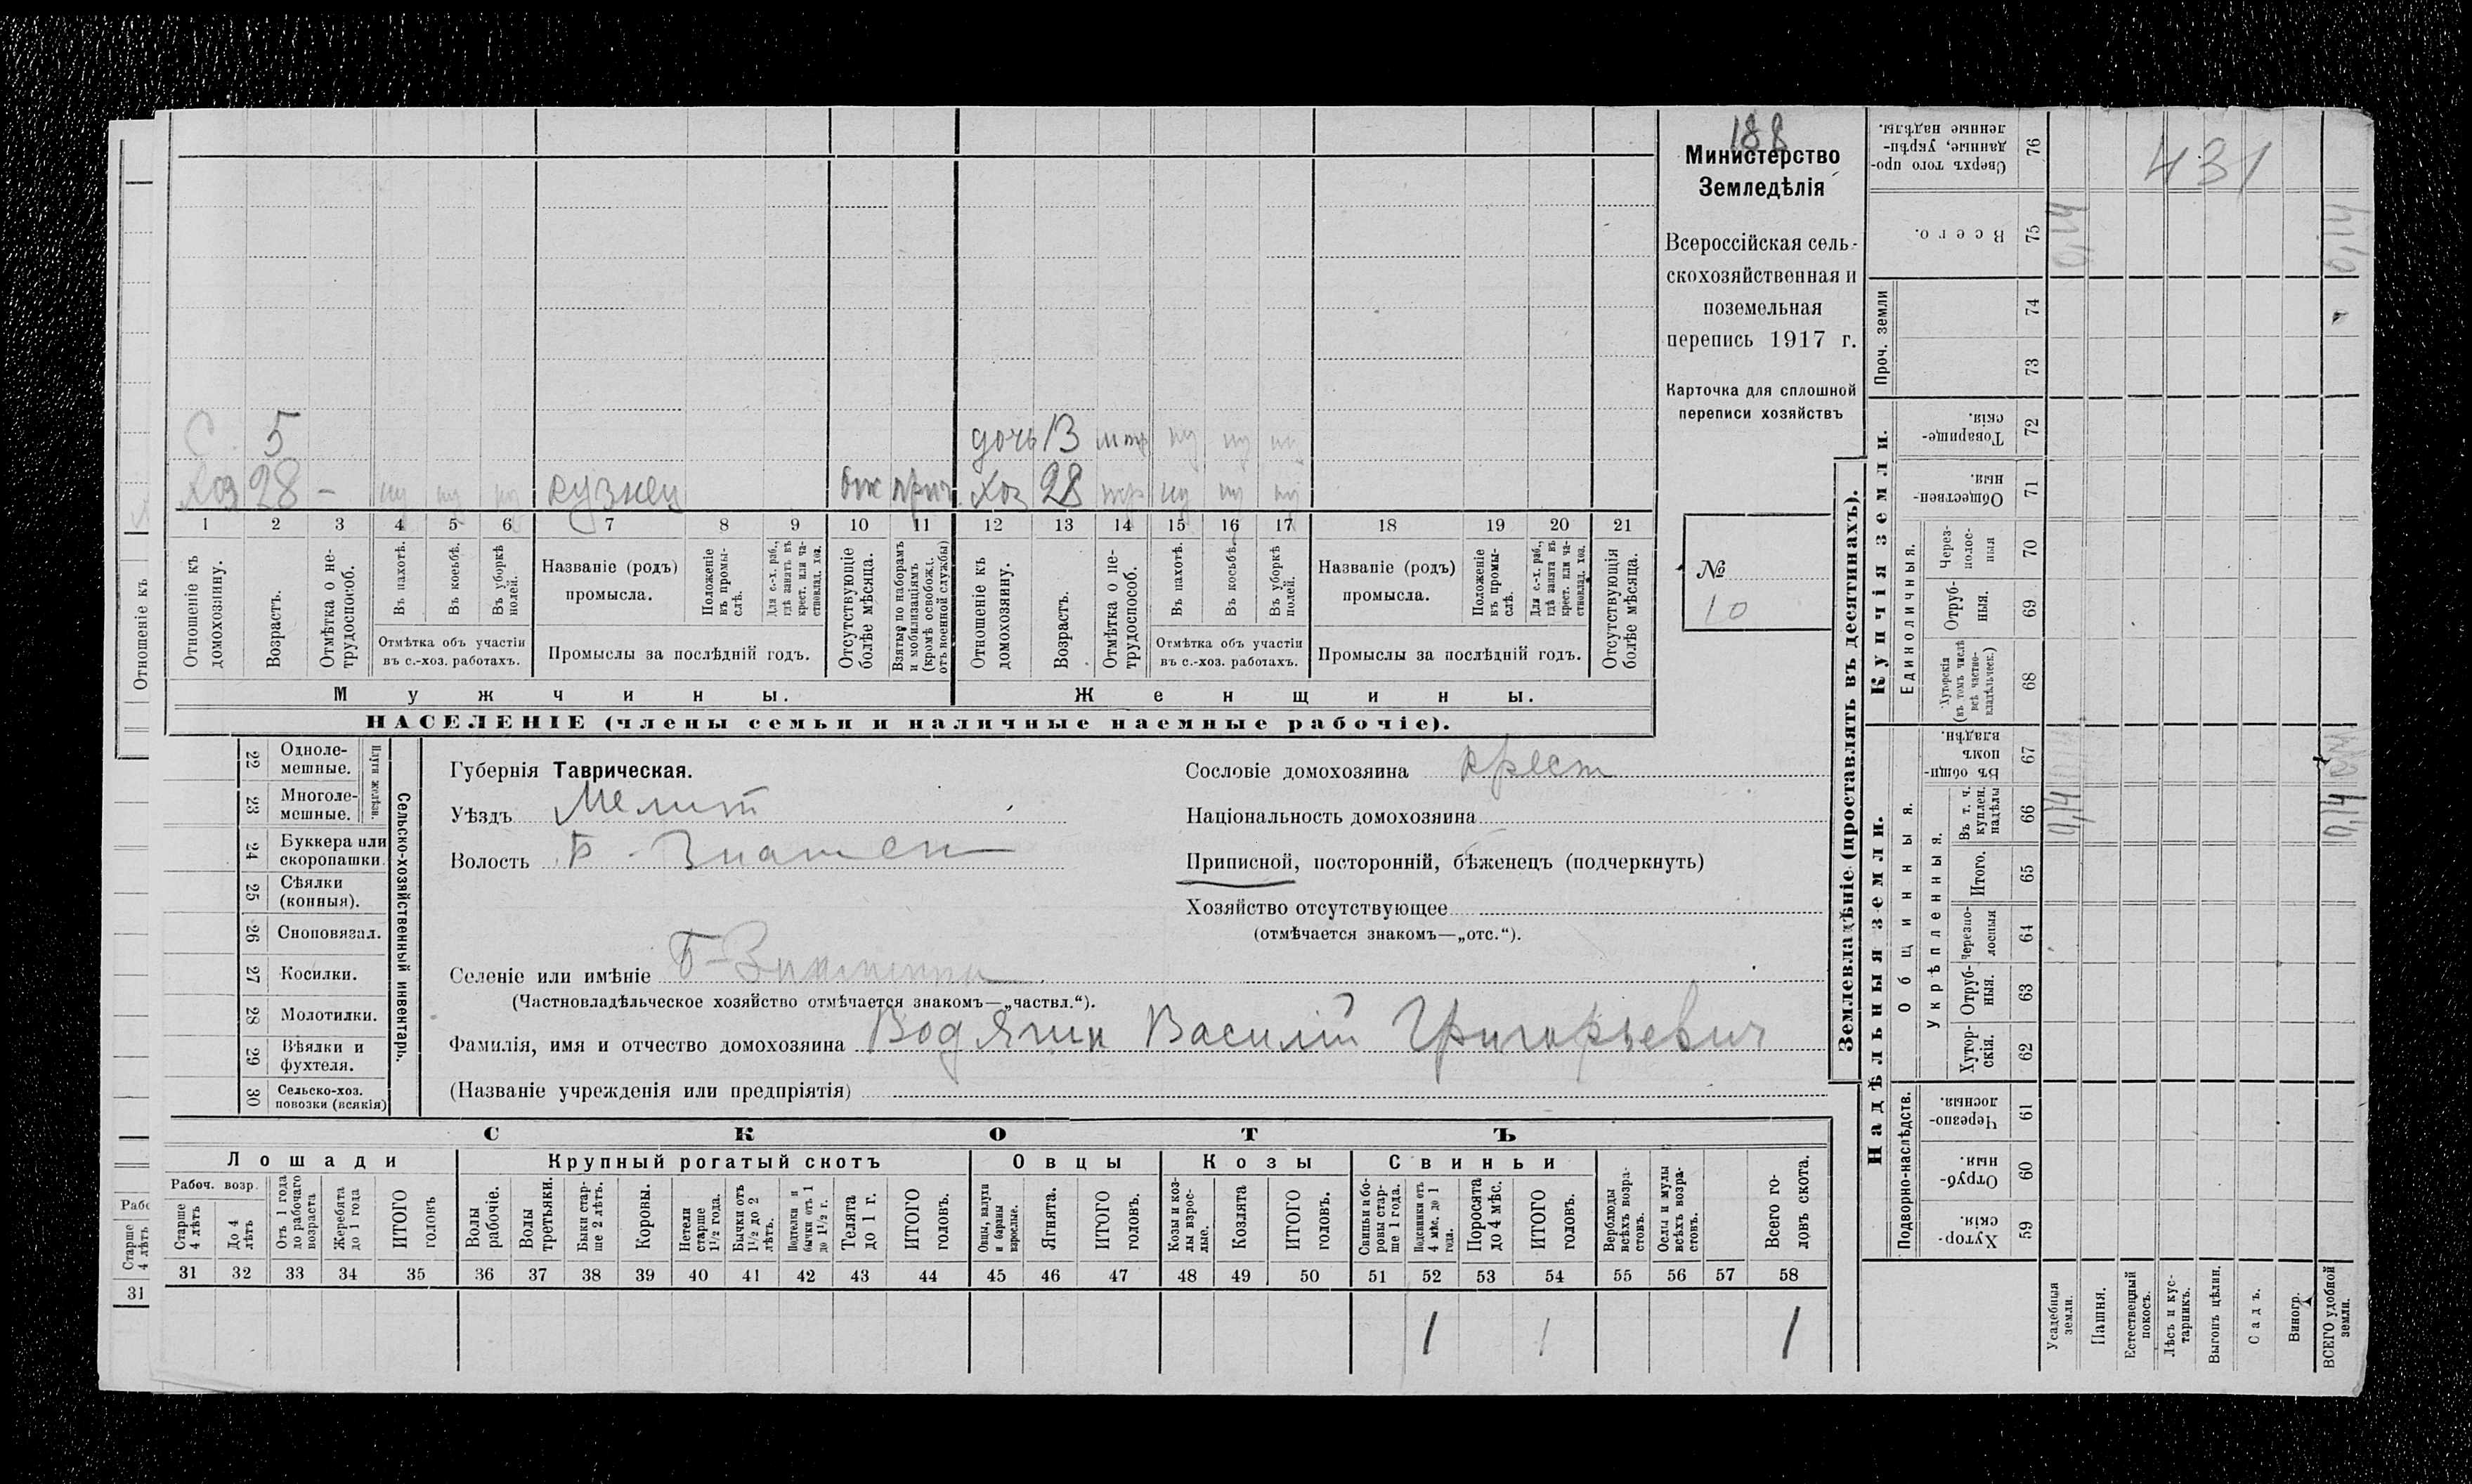 188
Министерство
Земледѣлія
Всероссійская сель-
скохозяйственная и
поземельная
перепись 1917 г.
Карточка для сплошной
переписи хозяйствъ
№
10
С. 5 дочь 13
Хоз 28 – кузнец Хоз 28
1 2 3 4 5 6 7 8 9 10 11 12 13 14 15 16 17 18 19 20 21
Отношеніе къ домохозяину.
Возрастъ.
Отмѣтка о не-трудоспособ.
Въ пахотѣ.
Въ косьбѣ.
Въ уборкѣ полей.
Отмѣтка объ участіи
въ с.-хоз. работахъ.
Названіе (родъ)
промысла.
Положеніе въ промы-слѣ.
Для с.-х. раб., гдѣ занатъ въ крест. или ча-стновлад. хоз.
Промыслы за послѣдній годъ.
Отсутствующіе болѣе мѣсяца.
Взятые по наборамъ и мобилизаціямъ (кромѣ освобожд. отъ военной службы)
Отношеніе къ домохозяину.
Возрастъ.
Отмѣтка о не-трудоспособ.
Въ пахотѣ.
Въ косьбѣ.
Въ уборкѣ полей.
Отмѣтка объ участіи
въ с.-хоз. работахъ.
Названіе (родъ)
промысла.
Положеніе въ промы-слѣ.
Для с.-х. раб., гдѣ заната въ крест. или ча-стновлад. хоз.
Промыслы за послѣдній годъ.
Отсутствующія болѣе мѣсяца.
Мужчины.
Женщины.
НАСЕЛЕНІЕ (члены семьи и наличные наемные рабочіе).
Отношеніе къ
22 Одноле-мешные.
23 Многоле-мешные.
Плуги желѣзн.
24 Буккера или скоропашки.
25 Сѣялки (конныя).
26 Сноповязал.
27 Косилки.
28 Молотилки.
29 Вѣялки и фухтеля.
30 Сельско-хоз. повозки (всякія)
Сельско-хозяйственный инвентарь.
Губернія Таврическая.
Уѣздъ Мелит
Волость Б. Знамен
Сословіе домохозяина крест
Національность домохозяина
Приписной, посторонній, бѣженецъ (подчеркнуть)
Хозяйство отсутствующее
(отмѣчается знакомъ—„отс.“).
Селеніе или имѣніе Б-Знаменка
(Частновладѣльческое хозяйство отмѣчается знакомъ—„частвл.“).
Фамилія, имя и отчество домохозяина Водягин Василий Григорьевич
(Названіе учрежденія или предпріятія)
СКОТЪ
Лошади
Крупный рогатый скотъ
Овцы
Козы
Свиньи
Рабоч. возр.
Старше 4 лѣтъ
До 4 лѣтъ
Отъ 1 года до рабочаго возраста
Жеребята до 1 года
ИТОГО головъ
Волы рабочіе.
Волы третьяки.
Быки стар-ше 2 лѣтъ.
Коровы.
Нетели старше 1½ года.
Бычки отъ 1½ до 2 лѣтъ.
Подтелки и бычки отъ 1 до 1½ г.
Телята до 1 г.
ИТОГО головъ.
Овцы, валухи и бараны взрослые.
Ягнята.
ИТОГО головъ.
Козы и коз-лы взрос-лые.
Козлята
ИТОГО головъ.
Свиньи и бо-ровы стар-ше 1 года.
Подсвинки отъ 4 мѣс. до 1 года.
Поросята до 4 мѣс.
ИТОГО головъ.
Верблюды всѣхъ возра-стовъ.
Ослы и мулы всѣхъ возра-стовъ.
Всего го-ловъ скота.
31 32 33 34 35 36 37 38 39 40 41 42 43 44 45 46 47 48 49 50 51 52 53 54 55 56 57 58
1 1 1
Старше 4 лѣтъ
31
Землевладѣніе (проставлять въ десятинахъ).
Надѣльныя земли.
Купчія земли.
Проч. земли
Подворно-наслѣдств.
Общинныя.
Укрѣпленныя.
Единоличныя.
Хутор-скія. 59
Отруб-ныя. 60
Черезпо-лосныя. 61
Хутор-скія. 62
Отруб-ныя. 63
Черезпо-лосныя 64
Итого. 65
Въ т. ч. куплен. надѣлы 66
Въ общин-номъ владѣн. 67
Хуторскія (въ томъ числѣ всѣ частно-владѣльческ.) 68
Отруб-ныя. 69
Через-полос-ныя 70
Обществен-ныя. 71
Товарище-скія. 72
73
74
Всего. 75
Сверхъ того про-данные, укрѣп-ленные надѣлы. 76
Усадебныя земли.
Пашня.
Естественный покосъ.
Лѣсъ и кус-тарникъ.
Выгонъ цѣлин.
Садъ.
Виногр.
ВСЕГО удобной земли.
431
0,14
0,14
0,14
0,14